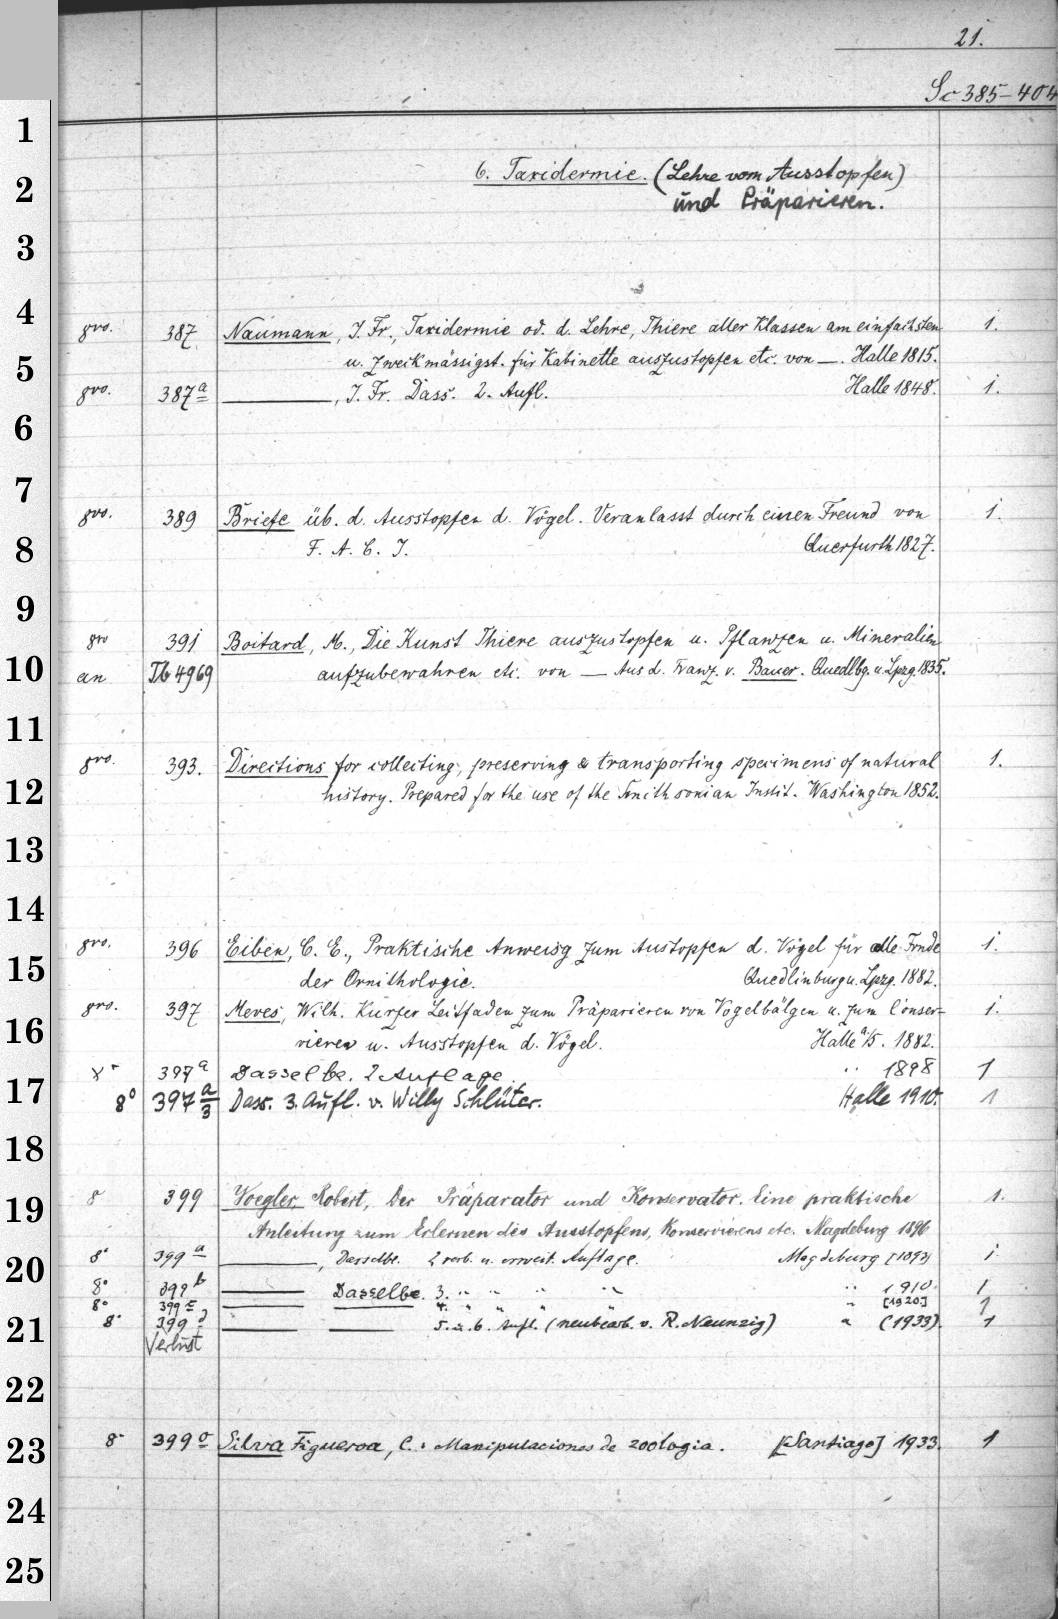 21.
Sc 385-404
1
2
3
4
5
6
7
8
9
10
11
12
13
14
15
16
17
18
19
20
21
22
23
24
25
6. Taxidermie. (Lehre vom Ausstopfen)
und Präparieren.
8vo. 387 Naumann, J. Fr., Taxidermie od. d. Lehre, Thiere aller Klassen am einfachsten 1.
u. zweckmässigst. für Kabinette auszustopfen etc. von —. Halle 1815.
8vo. 387a ———, J. Fr. Dass. 2. Aufl. Halle 1848. 1.
8vo. 389 Briefe üb. d. Ausstopfen d. Vögel. Veranlasst durch einen Freund von 1.
F. A. C. J. Querfurth 1827.
8vo 391 Boitard, M., Die Kunst Thiere auszustopfen u. Pflanzen u. Mineralien
an Tb 4969 aufzubewahren etc. von — Aus d. Franz. v. Bauer. Quedlbg. u. Lpzg. 1835.
8vo. 393. Directions for collecting, preserving & transporting specimens of natural 1.
history. Prepared for the use of the Smithsonian Instit. Washington 1852.
8vo. 396 Eiben, C. E., Praktische Anweisg zum Austopfen d. Vögel für alle Frnde 1.
der Ornithologie. Quedlinburg u. Lpzg. 1882.
8vo. 397 Meves, Wilh. Kurzer Leitfaden zum Präparieren von Vogelbälgen u. zum Conser- 1.
vieren u. Ausstopfen d. Vögel. Halle a/S. 1882.
397a Dasselbe. 2 Auflage " 1898 1
8° 397 a/3 Dass. 3. Aufl. v. Willy Schlüter. Halle 1910. 1
8 399 Voegler, Robert, Der Präparator und Konservator. Eine praktische 1.
Anleitung zum Erlernen des Ausstopfens, Konservierens etc. Magdeburg 1896
8° 399a ———, Dasselbe. 2 verb. u. erweit. Auflage. Magdeburg 1.
8° 399b ——— Dasselbe. 3. " " " " " 1910. 1
8° 399c ——— ——— 4. " " " " [1920] 1
8° 399d ——— ——— 5. u. 6. Aufl. (neubearb. v. R. Neunzig) " (1933). 1
Verlust
8° 399 Silva Figueroa, C.: Manipulaciones de zoologia. [Santiago] 1933. 1